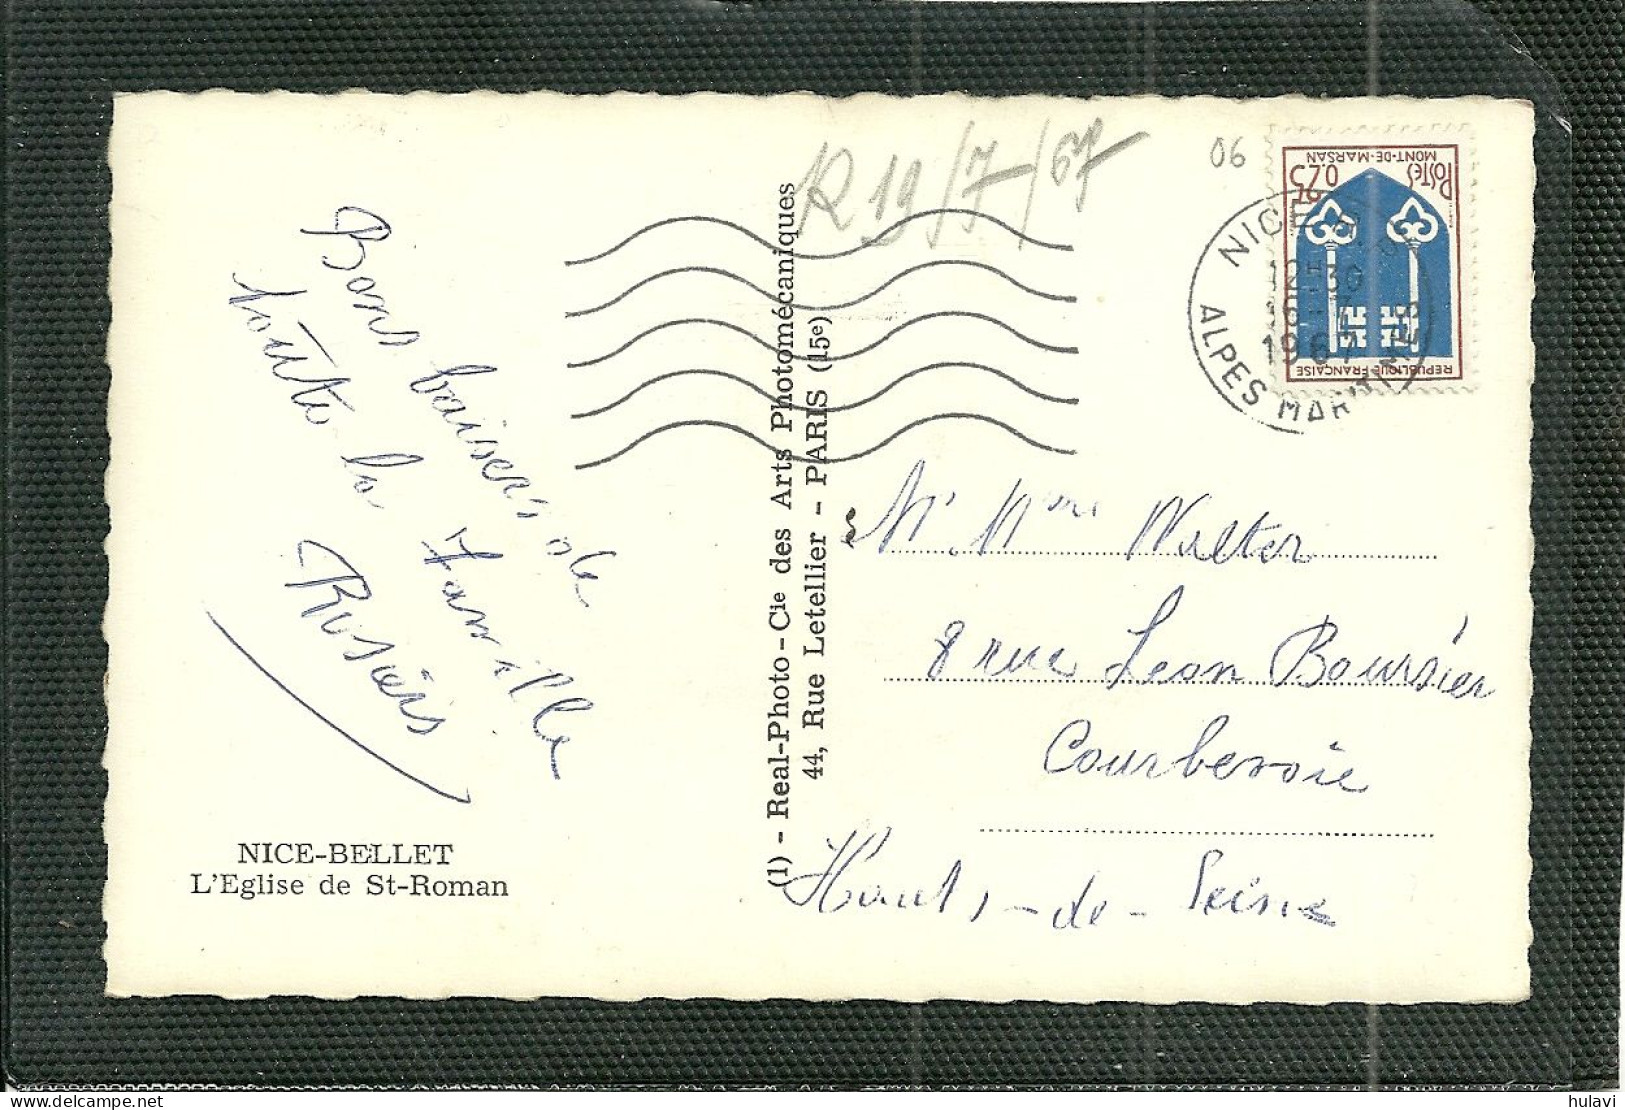 R 19/7/67
06
POSTES 0,25
MONT-DE-MARSAN
REPUBLIQUE-FRANÇAISE
NICE
12H30
16-7
1967
ALPES MARITIMES
Bons baisers de
toute la famille
(1) - Real-Photo - Cie des Arts Photomécaniques
44, Rue Letellier - PARIS (15e)
Mr Mme Walter
8 rue Leon Boursier
Courbevoie
Hauts-de-Seine
NICE-BELLET
L'Eglise de St-Roman
hulavi